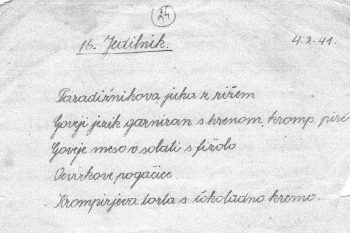 24
16. Jedilnik. 4.2.41.
Paradižnikova juha z rižem
Goveji jezik garniran s hrenom, kromp. pire
Goveje meso v solati s fižolo
Ocvrkove pogačice
Krompirjeva torta s čokoladno kremo.